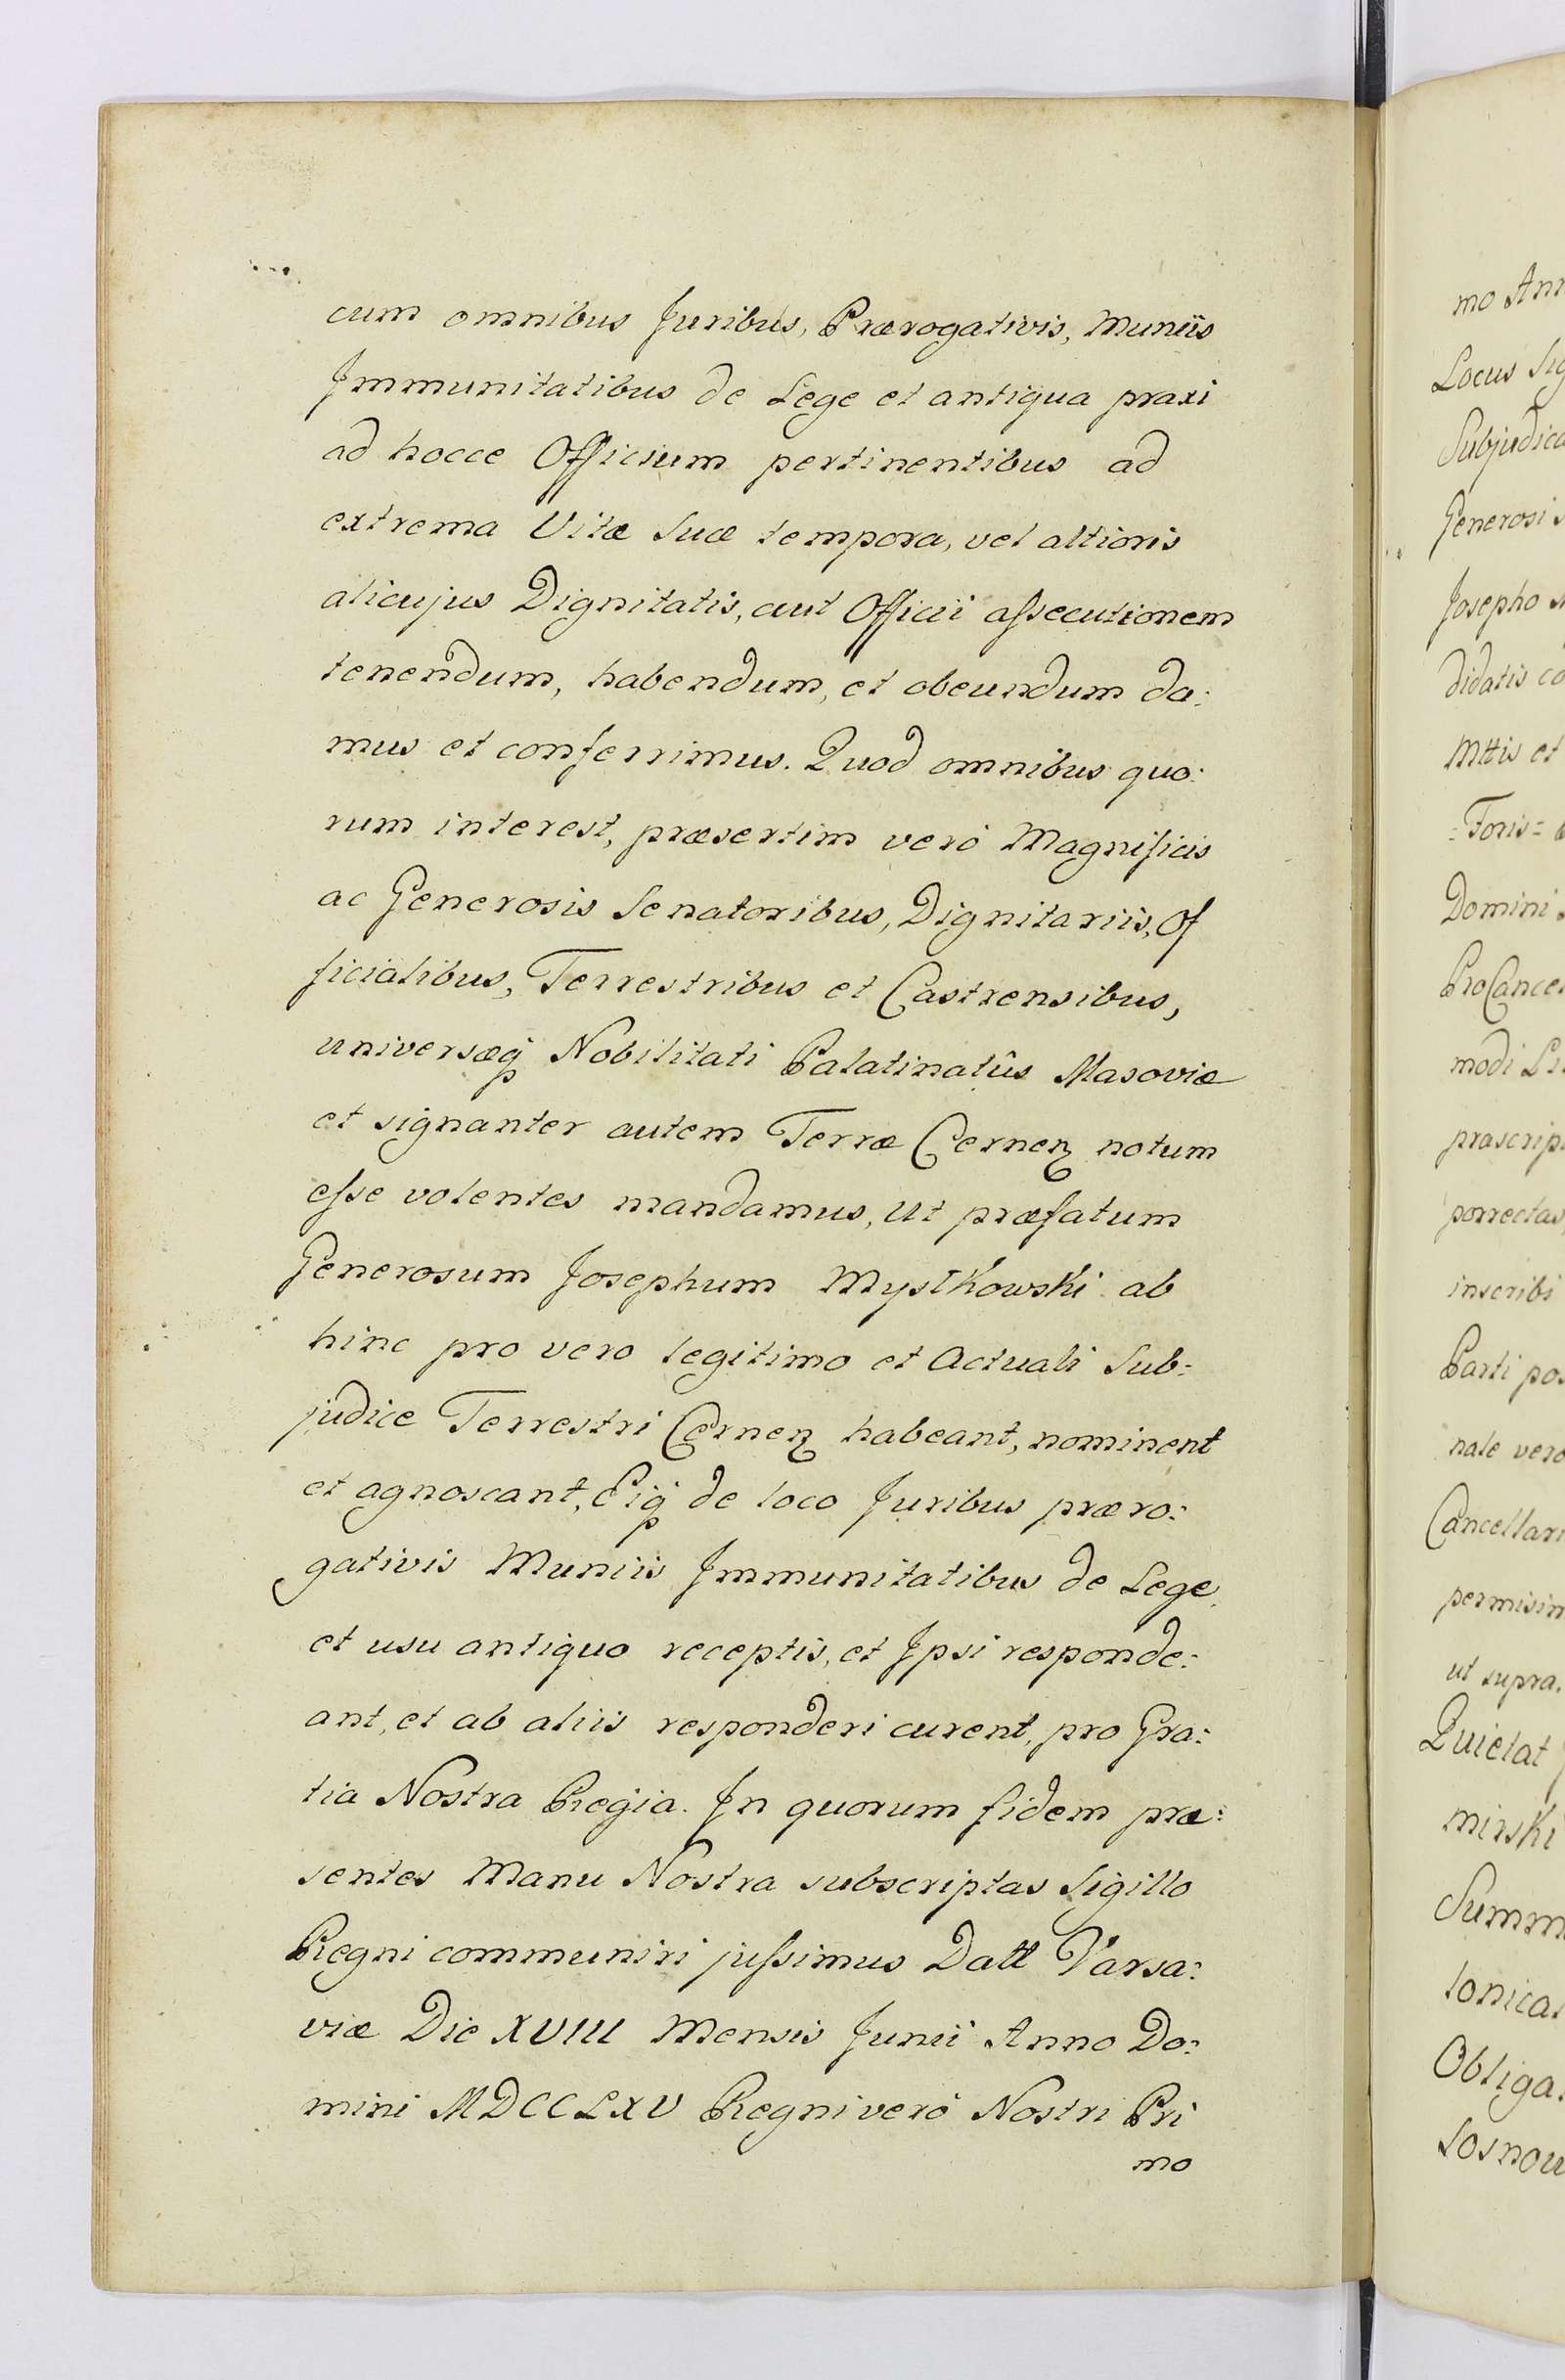 cum omnibus Juribus, Prærogativis, Muniis
Jmmunitatibus de Lege et antiqua praxi
ad hocce Officium pertinentibus ad
extrema Vitæ Suæ tempora, vel altioris
alicujus Dignitatis, aut Officii aſsecutionem
tenendum, habendum, et obeundum da:
mus et conferrimus. Quod omnibus quo:
rum interest, præsertim verò Magnificis
ac Generosis Senatoribus, Dignitariis, Of
ficialibus, Terrestribus et Castrensibus,
universæq́ Nobilitati Palatinatûs Masoviæ
et signanter autem Terræ Cernen notum
eſse volentes mandamus, Ut præfatum
Generosum Josephum Mystkowski ab
hinc pro vero legitimo et Actuali Sub:
judice Terrestri Cernen habeant, nominent
et agnoscant, Eiq́ de loco Juribus præro:
gativis Muniis Jmmunitatibus de Lege
et usu antiquo receptis, et Jpsi responde:
ant, et ab aliis responderi curent, pro Gra:
tia Nostra Regia. Jn quorum fidem præ:
sentes Manu Nostra subscriptas Sigillo
Regni communiri juſsimus Datt Varsa:
viæ Die XVIII Mensis Junii Anno Do:
mini MDCCLXV Regni verò Nostri Pri
mo
mo
Locus
Generosi
Josepho
didatis
Mttis et
Toris=
Domini
modi
porrectas
inscribi
Parti
nale
ut supra.
Quietat
minski